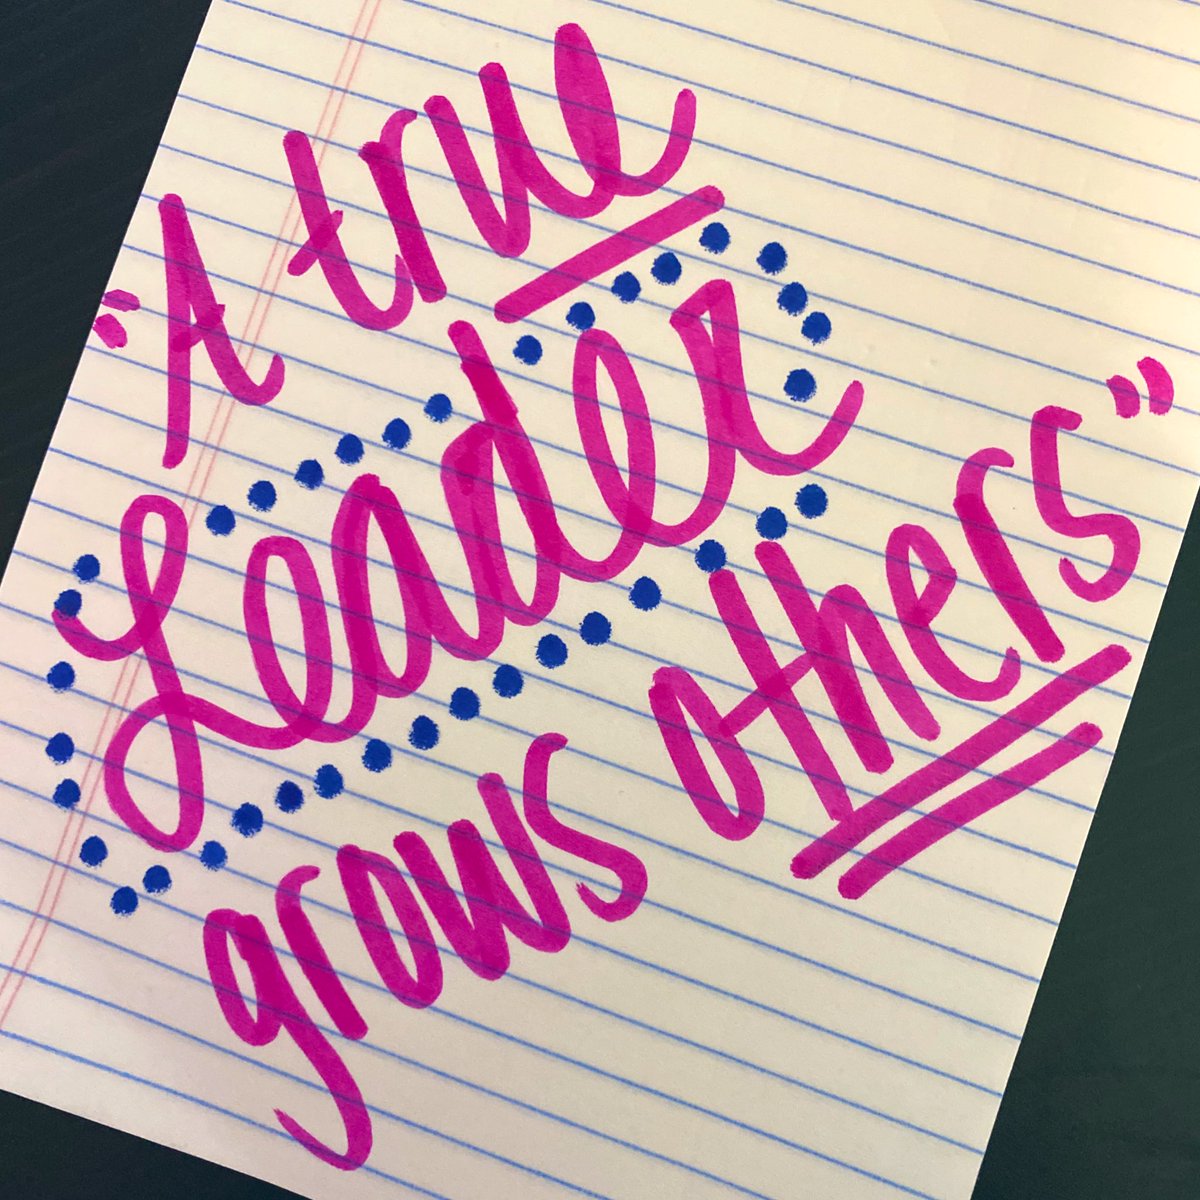 "A true
Leader
grows others"